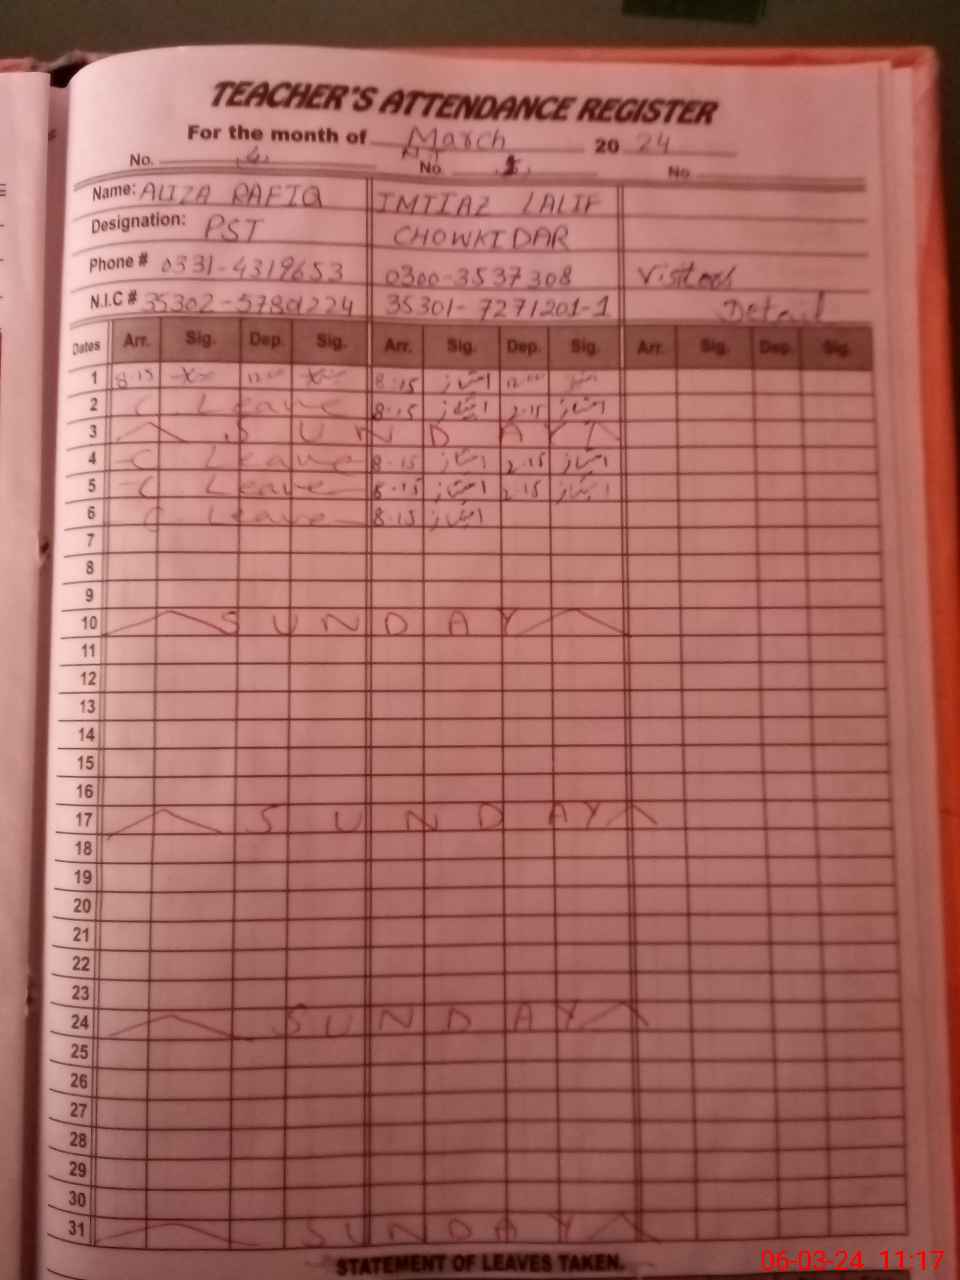 TEACHER'S ATTENDANCE REGISTER
For the month of March 2024
No. No. No.
Name: ALIZA RAFIQ IMTIAZ LALIF
Designation: PST CHOWKIDAR
Phone # 0331-4319653 0300-3537308 Visitors
N.I.C # 35301-7271201-1 Detail
Dates Arr. Sig. Dep. Sig. Arr. Sig. Dep. Sig. Arr. Sig. Dep. Sig.
1 8.15 8.15 امتیاز
2 C Leave 8.15 امتیاز 2.15 امتیاز
3 SUNDAY
4 C Leave 8.15 امتیاز 2.15 امتیاز
5 C Leave 8.15 امتیاز 2.15 امتیاز
6 C Leave 8.15 امتیاز
7
8
9
10 SUNDAY
11
12
13
14
15
16
17 SUNDAY
18
19
20
21
22
23
24 SUNDAY
25
26
27
28
29
30
31 SUNDAY
STATEMENT OF LEAVES TAKEN.
06-03-24 11:17